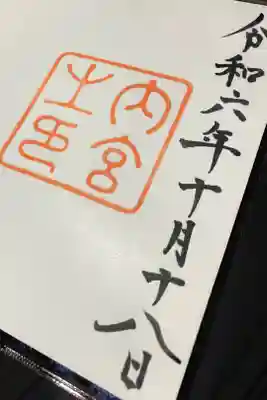 令和六年十月十八日
内宮
之印